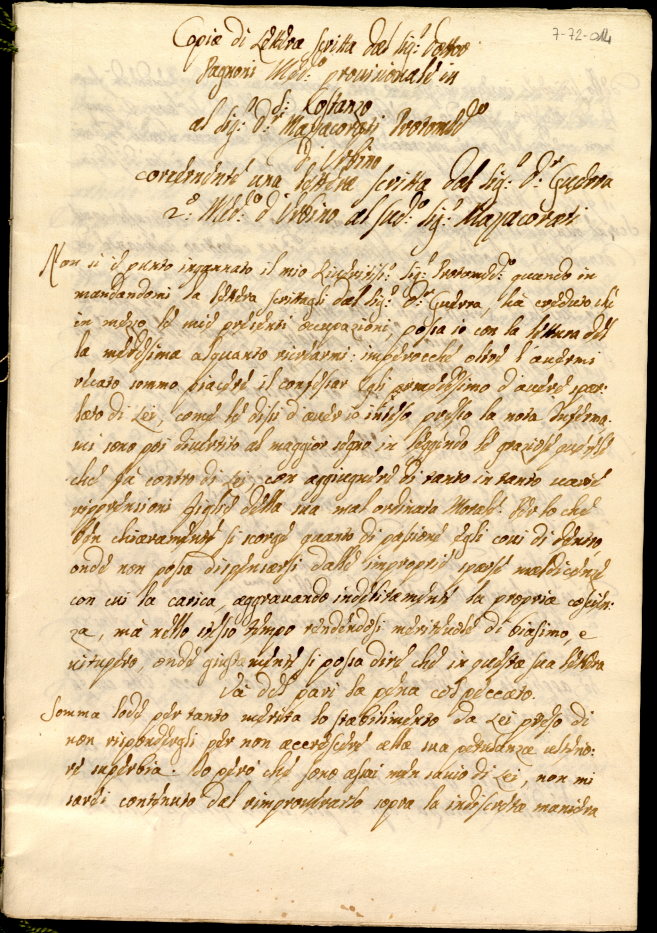 7-72-014
Copia di Lettera scritta dal Sig.r Dottor
Pagnoni Med.o provisionale in
S. Costanzo
al Sig.r D.r Mazzacorati Protomed.o
di Urbino
concernente una lettera scritta dal Sig.r D.r Guerra
2.o Med.o d'Urbino al sud.o Sig.r Mazzacorati
Non si è punto ingannato il mio Sig.r Protomed.o quando in
mandandomi la lettera scrittagli dal Sig.r D.r Guerra, ha creduto che
in mezzo le mie presenti occupazioni, possa io con la lettura del
la medesima alquanto ricrearmi: imperocchè oltre l'avermi
recato sommo piacere il confessar Egli d'avere
di Lei, come le dissi d'aver io inteso presso la nota
mi sono poi divertito al maggior segno in leggendo le graziose
che fà contro di Lei, con aggiugnere di tanto in tanto varie
riprensioni figlie della sua mal ordinata Morale. Per lo che
ben chiaramente si scorge quanto di passione Egli covi di dentro,
onde non possa dispensarsi dalle improprie spesse maldicenze
con cui la carica, aggravando indebitamente la propria coscien-
za, mà nello stesso tempo rendendosi meritevole di biasimo, e
vitupero, onde giustamente si possa dire che in questa sua lettera
Và del pari la pena col peccato.
Somma lode per tanto merita lo stabilimento da Lei preso di
non rispondergli per non accrescere alla sua petulanza ulterio-
re superbia. Io però che sono assai men savio di Lei, non mi
sarei contenuto dal rimproverarlo sopra la indiscreta maniera